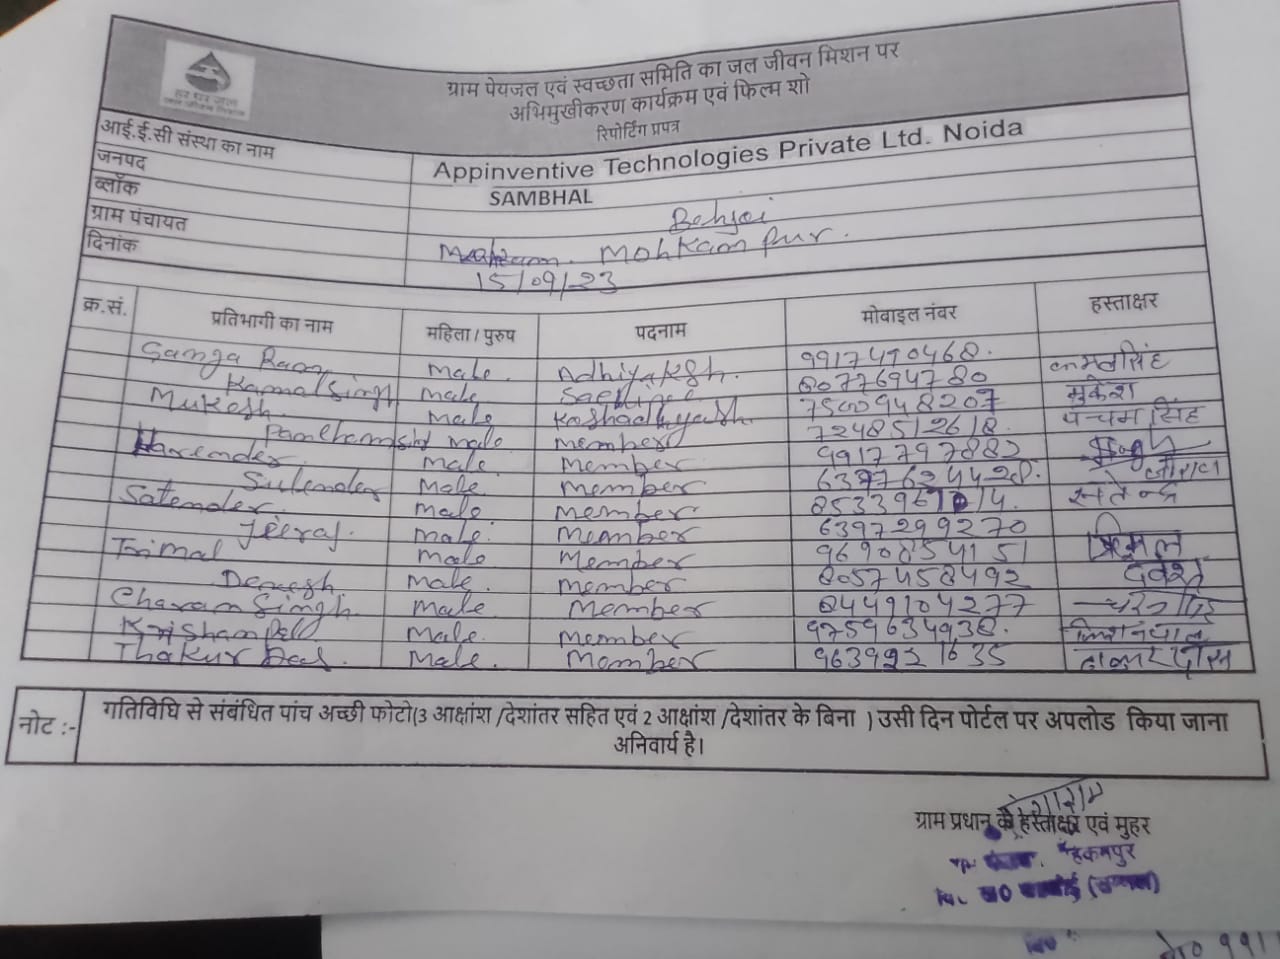 हर घर जल
जल जीवन मिशन
ग्राम पेयजल एवं स्वच्छता समिति का जल जीवन मिशन पर
अभिमुखीकरण कार्यक्रम एवं फिल्म शो
रिपोर्टिंग प्रपत्र
आई.ई.सी संस्था का नाम Appinventive Technologies Private Ltd. Noida
जनपद SAMBHAL
ब्लॉक Behjoi
ग्राम पंचायत Mohkampur.
दिनांक 15/09/23
क्र.सं. प्रतिभागी का नाम महिला / पुरुष पदनाम मोबाइल नंबर हस्ताक्षर
Ganga Ram Male. Adhiyaksh. 9917490468.
Kamal Singh Male 8077694780 कमल सिंह
Mukesh Male Koshadhyash. 7500948207 मुकेश
male member 7248512618. पंचम सिंह
Harender Male. member 9917797882
Sulender Male. member
Satender. Male. member सतेन्द्र
Jeeraj. Male. member 6397299270
Trimal Male member 9690854151 त्रिमल
Devesh Male. member 8057458492 देवेश
Charan Singh. Male member 8449104277
Krishanpal Male. member 9759634938.
Thakur Das. Male. Member 9639921635 ठाकुर दास
नोट :- गतिविधि से संबंधित पांच अच्छी फोटो(3 आक्षांश /देशांतर सहित एवं 2 आक्षांश /देशांतर के बिना ) उसी दिन पोर्टल पर अपलोड किया जाना
अनिवार्य है।
ग्राम प्रधान के हस्ताक्षर एवं मुहर